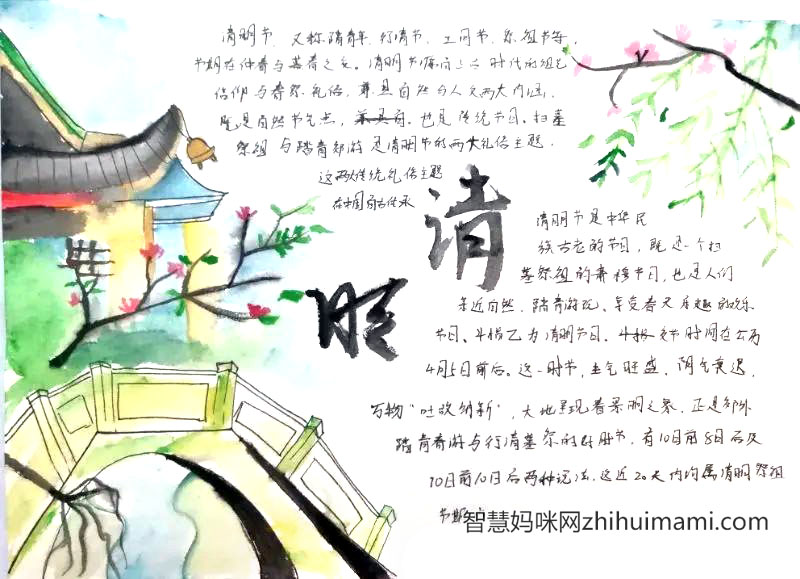 清明节，又称踏青节、行清节、三月节、祭祖节等，
节期在仲春与暮春之交。清明节源自上古时代的祖先
信仰与春祭礼俗，兼具自然与人文两大内涵，
既是自然节气点，也是传统节日。扫墓
祭祖与踏青郊游是清明节的两大礼俗主题，
这两大传统礼俗主题
在中国自古传承
清明
清明节是中华民
族古老的节日，既是一个扫
墓祭祖的肃穆节日，也是人们
亲近自然、踏青游玩、享受春天乐趣的欢乐
节日。斗指乙为清明节日，交节时间在公历
4月5日前后。这一时节，生气旺盛、阴气衰退，
万物“吐故纳新”，大地呈现春景明之象，正是郊外
踏青春游与行清墓祭的好时节，有10日前8日后及
10日前10日后两种说法，这近20天内均属清明祭祖
节期
智慧妈咪网zhihuimami.com